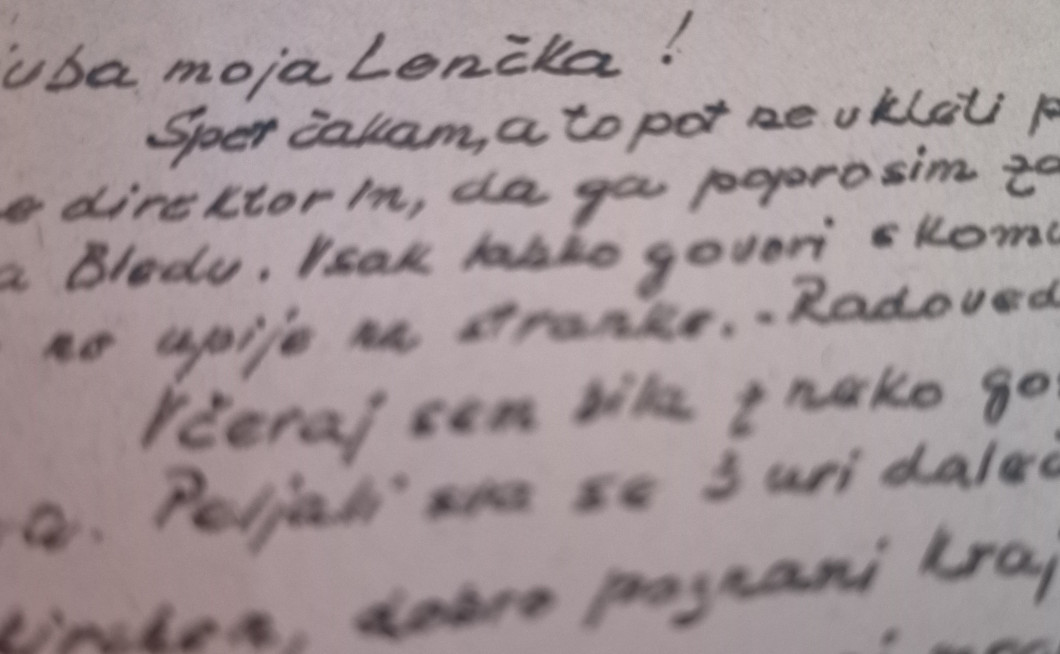 uba moja Lenčka!
Spet čakam, a to pot ne v kleti
direktorin, da ga poprosim za
a Bledu. Vsak lahko govori s
no upije na stranke.. Radoved
Včeraj sem bila z nako go
a. Peljali sva se 3 uri daleč
dobro poznani kraj